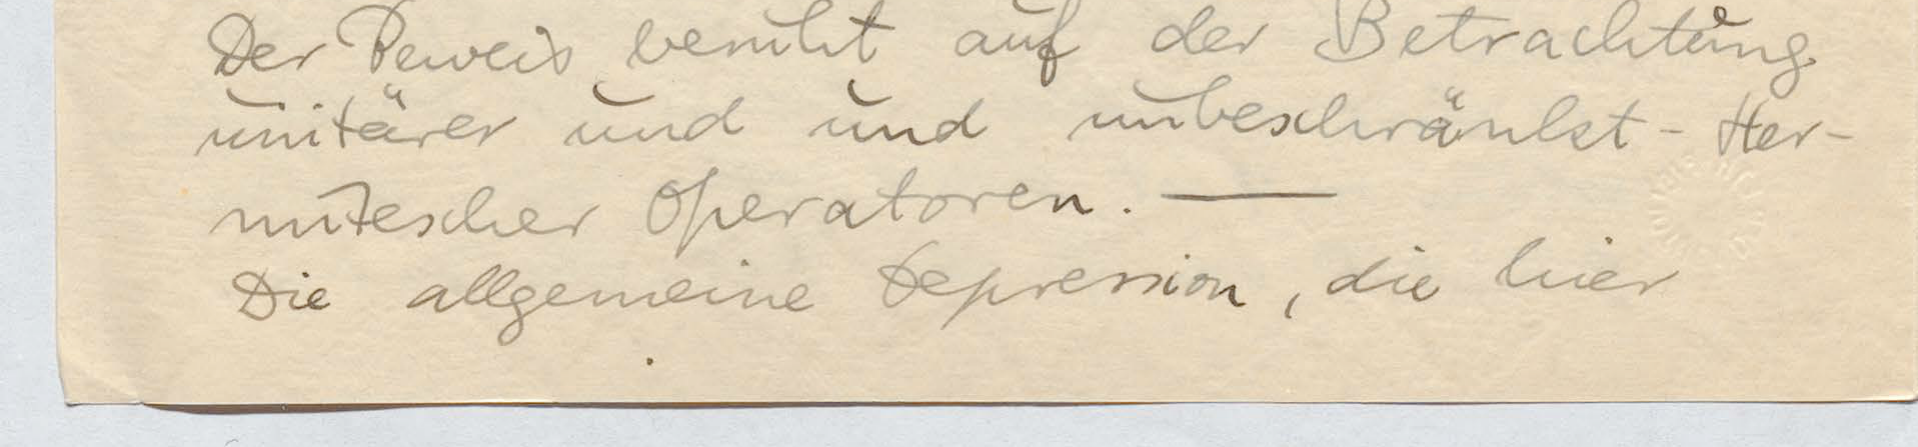 Der Beweis beruht auf der Betrachtung
unitärer und und unbeschränkt-Her-
mitescher Operatoren. —
Die allgemeine Depression, die hier